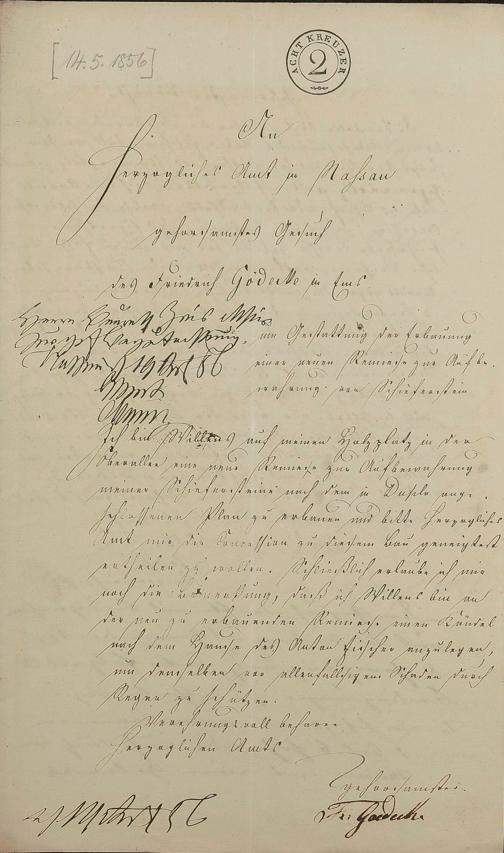 [14.5.1856]
ACHT KREUZER
2
An
Herzogliches Amt in Nassau
gehorsamstes Gesuch
des Friedrich Gödecke in Ems
um Gestattung der Erbauung
einer neuen Remiese zur Aufbe-
wahrung von Schieferstein
Herrn
Nassau d 19 56
Ich bin Willens auf meinen Holzplatz in der
Oberallee eine neue Remiese zur Aufbewahrung
meiner Schiefersteine nach dem in Duplo ange-
schlossenen Plan zu erbauen und bitte Herzogliches
Amt mir die Concession zu diesem Bau geneigtest
ertheilen zu wollen. Schließlich erlaube ich mir
noch die Bemerkung, daß ich Willens bin an
der neu zu erbauenden Remiese einen Kändel
nach dem Hause des Anton Fischer anzulegen,
um denselben vor allenfallsigem Schaden durch
Regen zu schützen.
Verehrungsvoll beharre
Herzoglichen Amts
gehorsamster
Fr. Goedecke
56